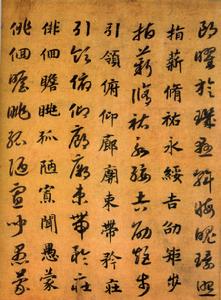 朗曜旋璣懸斡晦魄環照
指薪脩祜永綏吉劭矩步
指薪脩祜永綏吉劭矩步
引領俯仰廊廟束帶矜莊
引領俯仰廊廟束帶矜莊
徘徊瞻眺孤陋寡聞愚蒙
徘徊瞻眺孤陋寡聞愚蒙